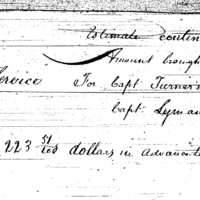 Estimate contin
Amount brough
ervice For Capt Turner's
Capt. Lyman
223 51/100 dollars in advance t